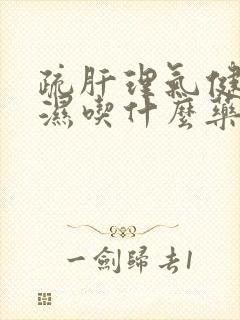 疏肝理氣健
濕喫什麼藥
一劍歸去1